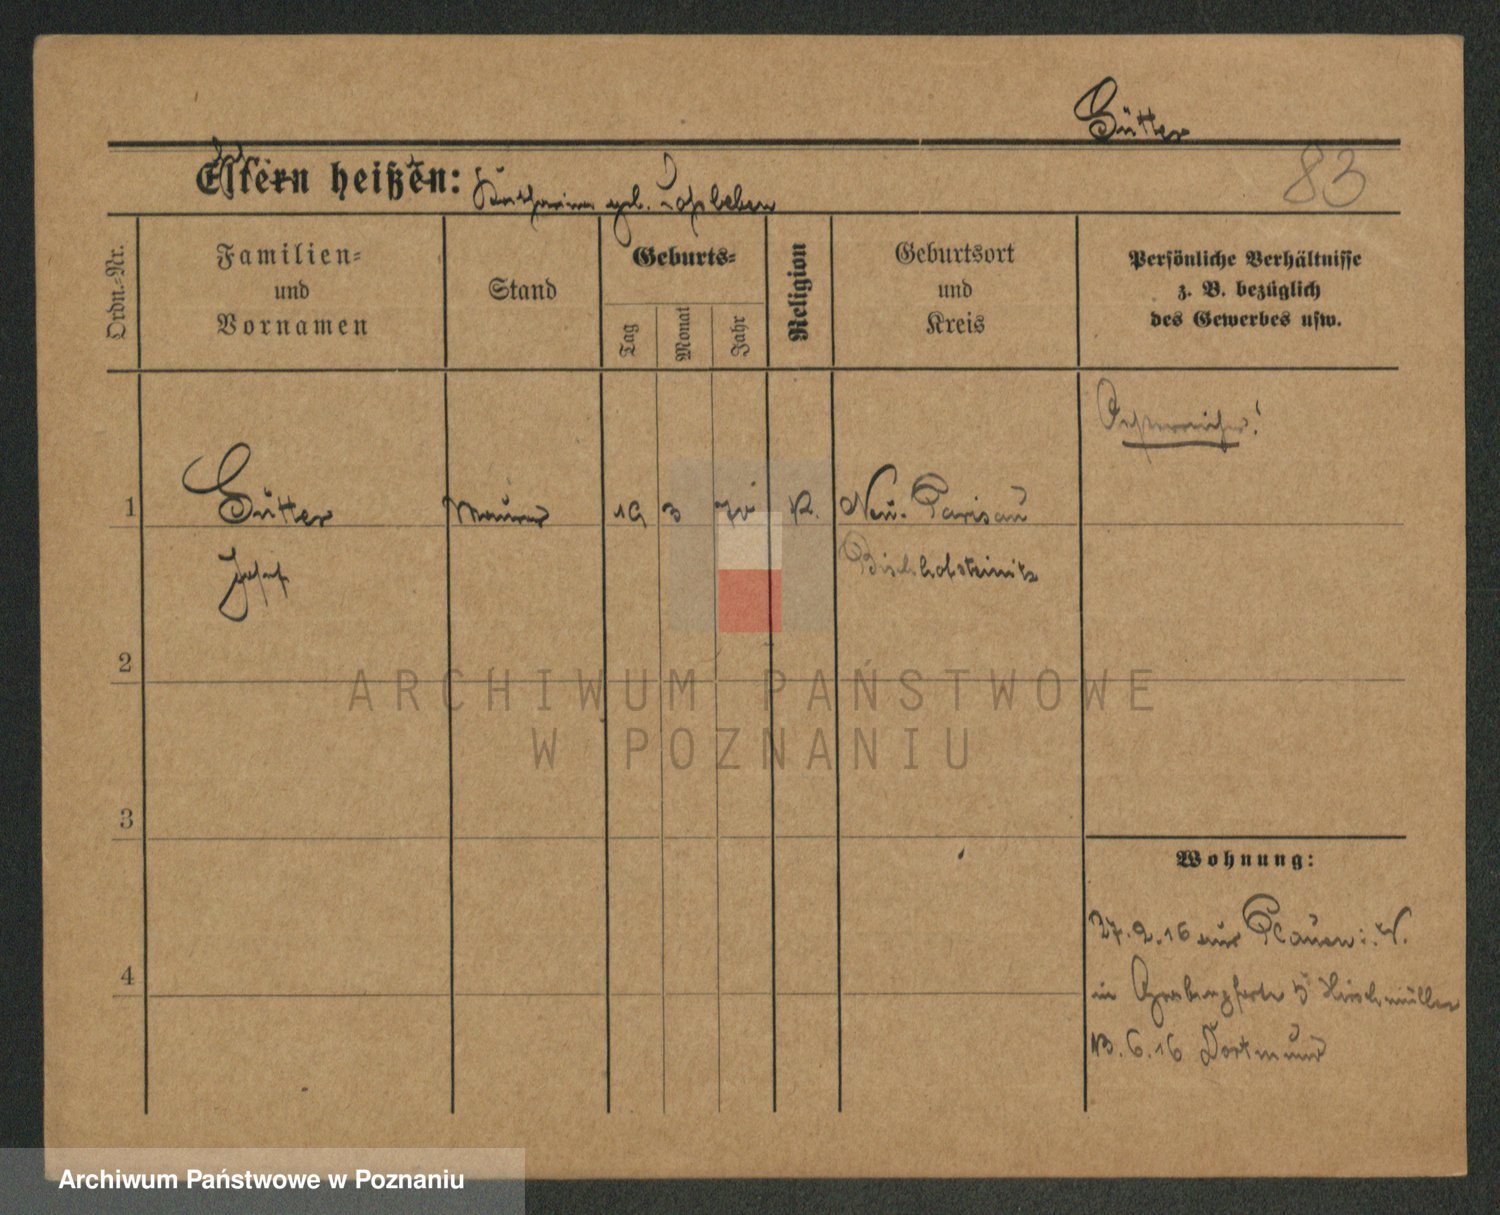 Gütter
83
Eltern heißen:
Katharina geb.
Ordn.-Nr.
Familien-
und
Vornamen
Stand
Geburts-
Tag
Monat
Jahr
Religion
Geburtsort
und
Kreis
Persönliche Verhältnisse
z. B. bezüglich
des Gewerbes usw.
Oesterreicher!
1
Gütter
Maurer
19
3
K.
Neu-Parisau
Josef
Bischofsteinitz
2
ARCHIWUM PAŃSTWOWE
W POZNANIU
3
Wohnung:
27.2.16 aus Plauen i. V.
in Grabenpforte 5 Hirschmüller
4
13.6.16 Dortmund
Archiwum Państwowe w Poznaniu